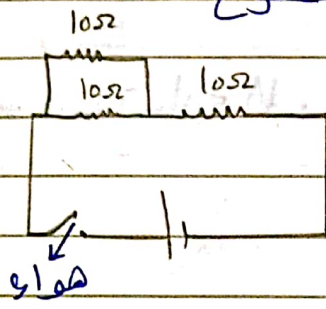 10Ω
10Ω
10Ω
هواء